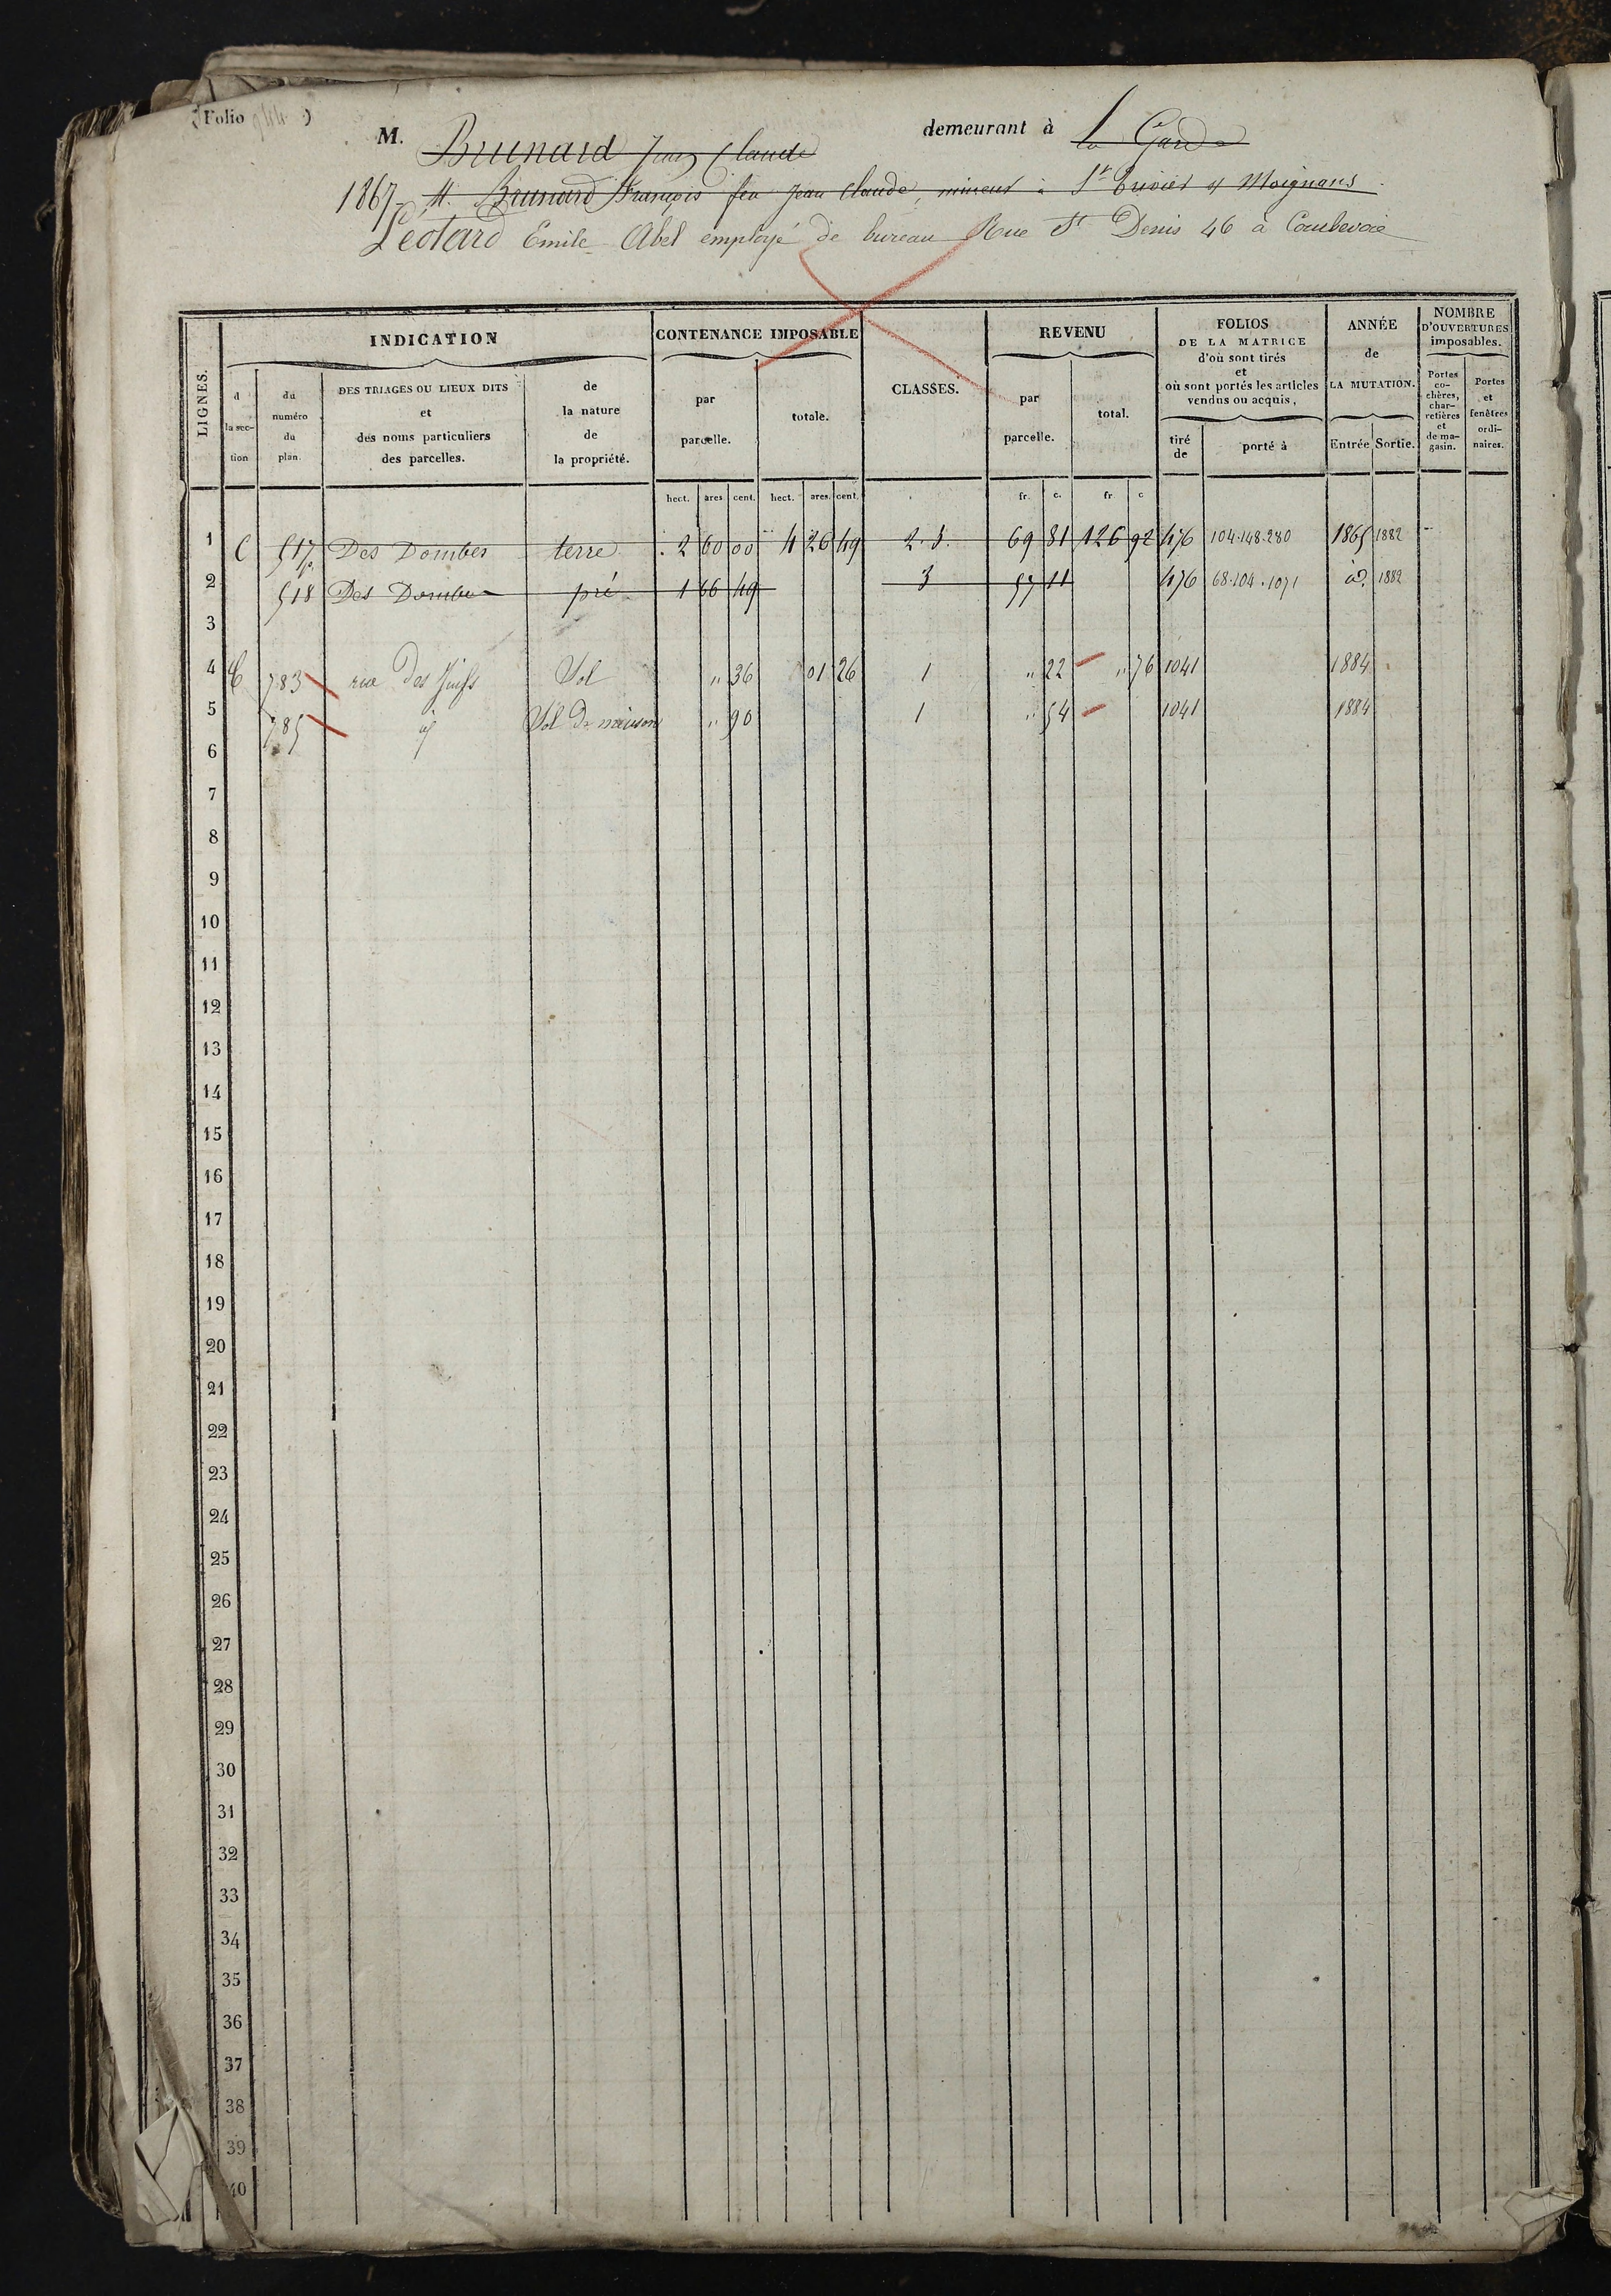 (Folio )
M. Brunard Jean Claude demeurant à la Garde
1867 - M. Brunard François feu Jean Claude, mineur à St Trivier s/ Moignans
Léotard Emile Abel employé de bureau Rue St Denis 46 à Courbevoie
LIGNES.
INDICATION
CONTENANCE IMPOSABLE
CLASSES.
REVENU
FOLIOS
DE LA MATRICE
d'où sont tirés
et
où sont portés les articles
vendus ou acquis,
ANNÉE
de
LA MUTATION.
NOMBRE
D'OUVERTURES
imposables.
d
la sec-
tion
du
numéro
du
plan.
DES TRIAGES OU LIEUX DITS
et
des noms particuliers
des parcelles.
de
la nature
de
la propriété.
par
parcelle.
totale.
par
parcelle.
total.
tiré
de
porté à
Entrée
Sortie.
Portes
co-
chères,
char-
retières
et
de ma-
gasin.
Portes
et
fenêtres
ordi-
naires.
hect. ares cent. hect. ares. cent. fr. c. fr c
1 C 517 p. Des Dombes terre 2 60 00 4 26 49 2. 3. 69 81 126 92 476 104.148.280 1865 1882
2 518 Des Dombes pré 1 66 49 3 57 11 476 68.104.1071 id. 1882
3
4 C 783 rue des Juifs Sol " 36 01 26 1 " 22 " 76 1041 1884
5 785 id Sol de maison " 90 1 " 54 1041 1884
6
7
8
9
10
11
12
13
14
15
16
17
18
19
20
21
22
23
24
25
26
27
28
29
30
31
32
33
34
35
36
37
38
39
40